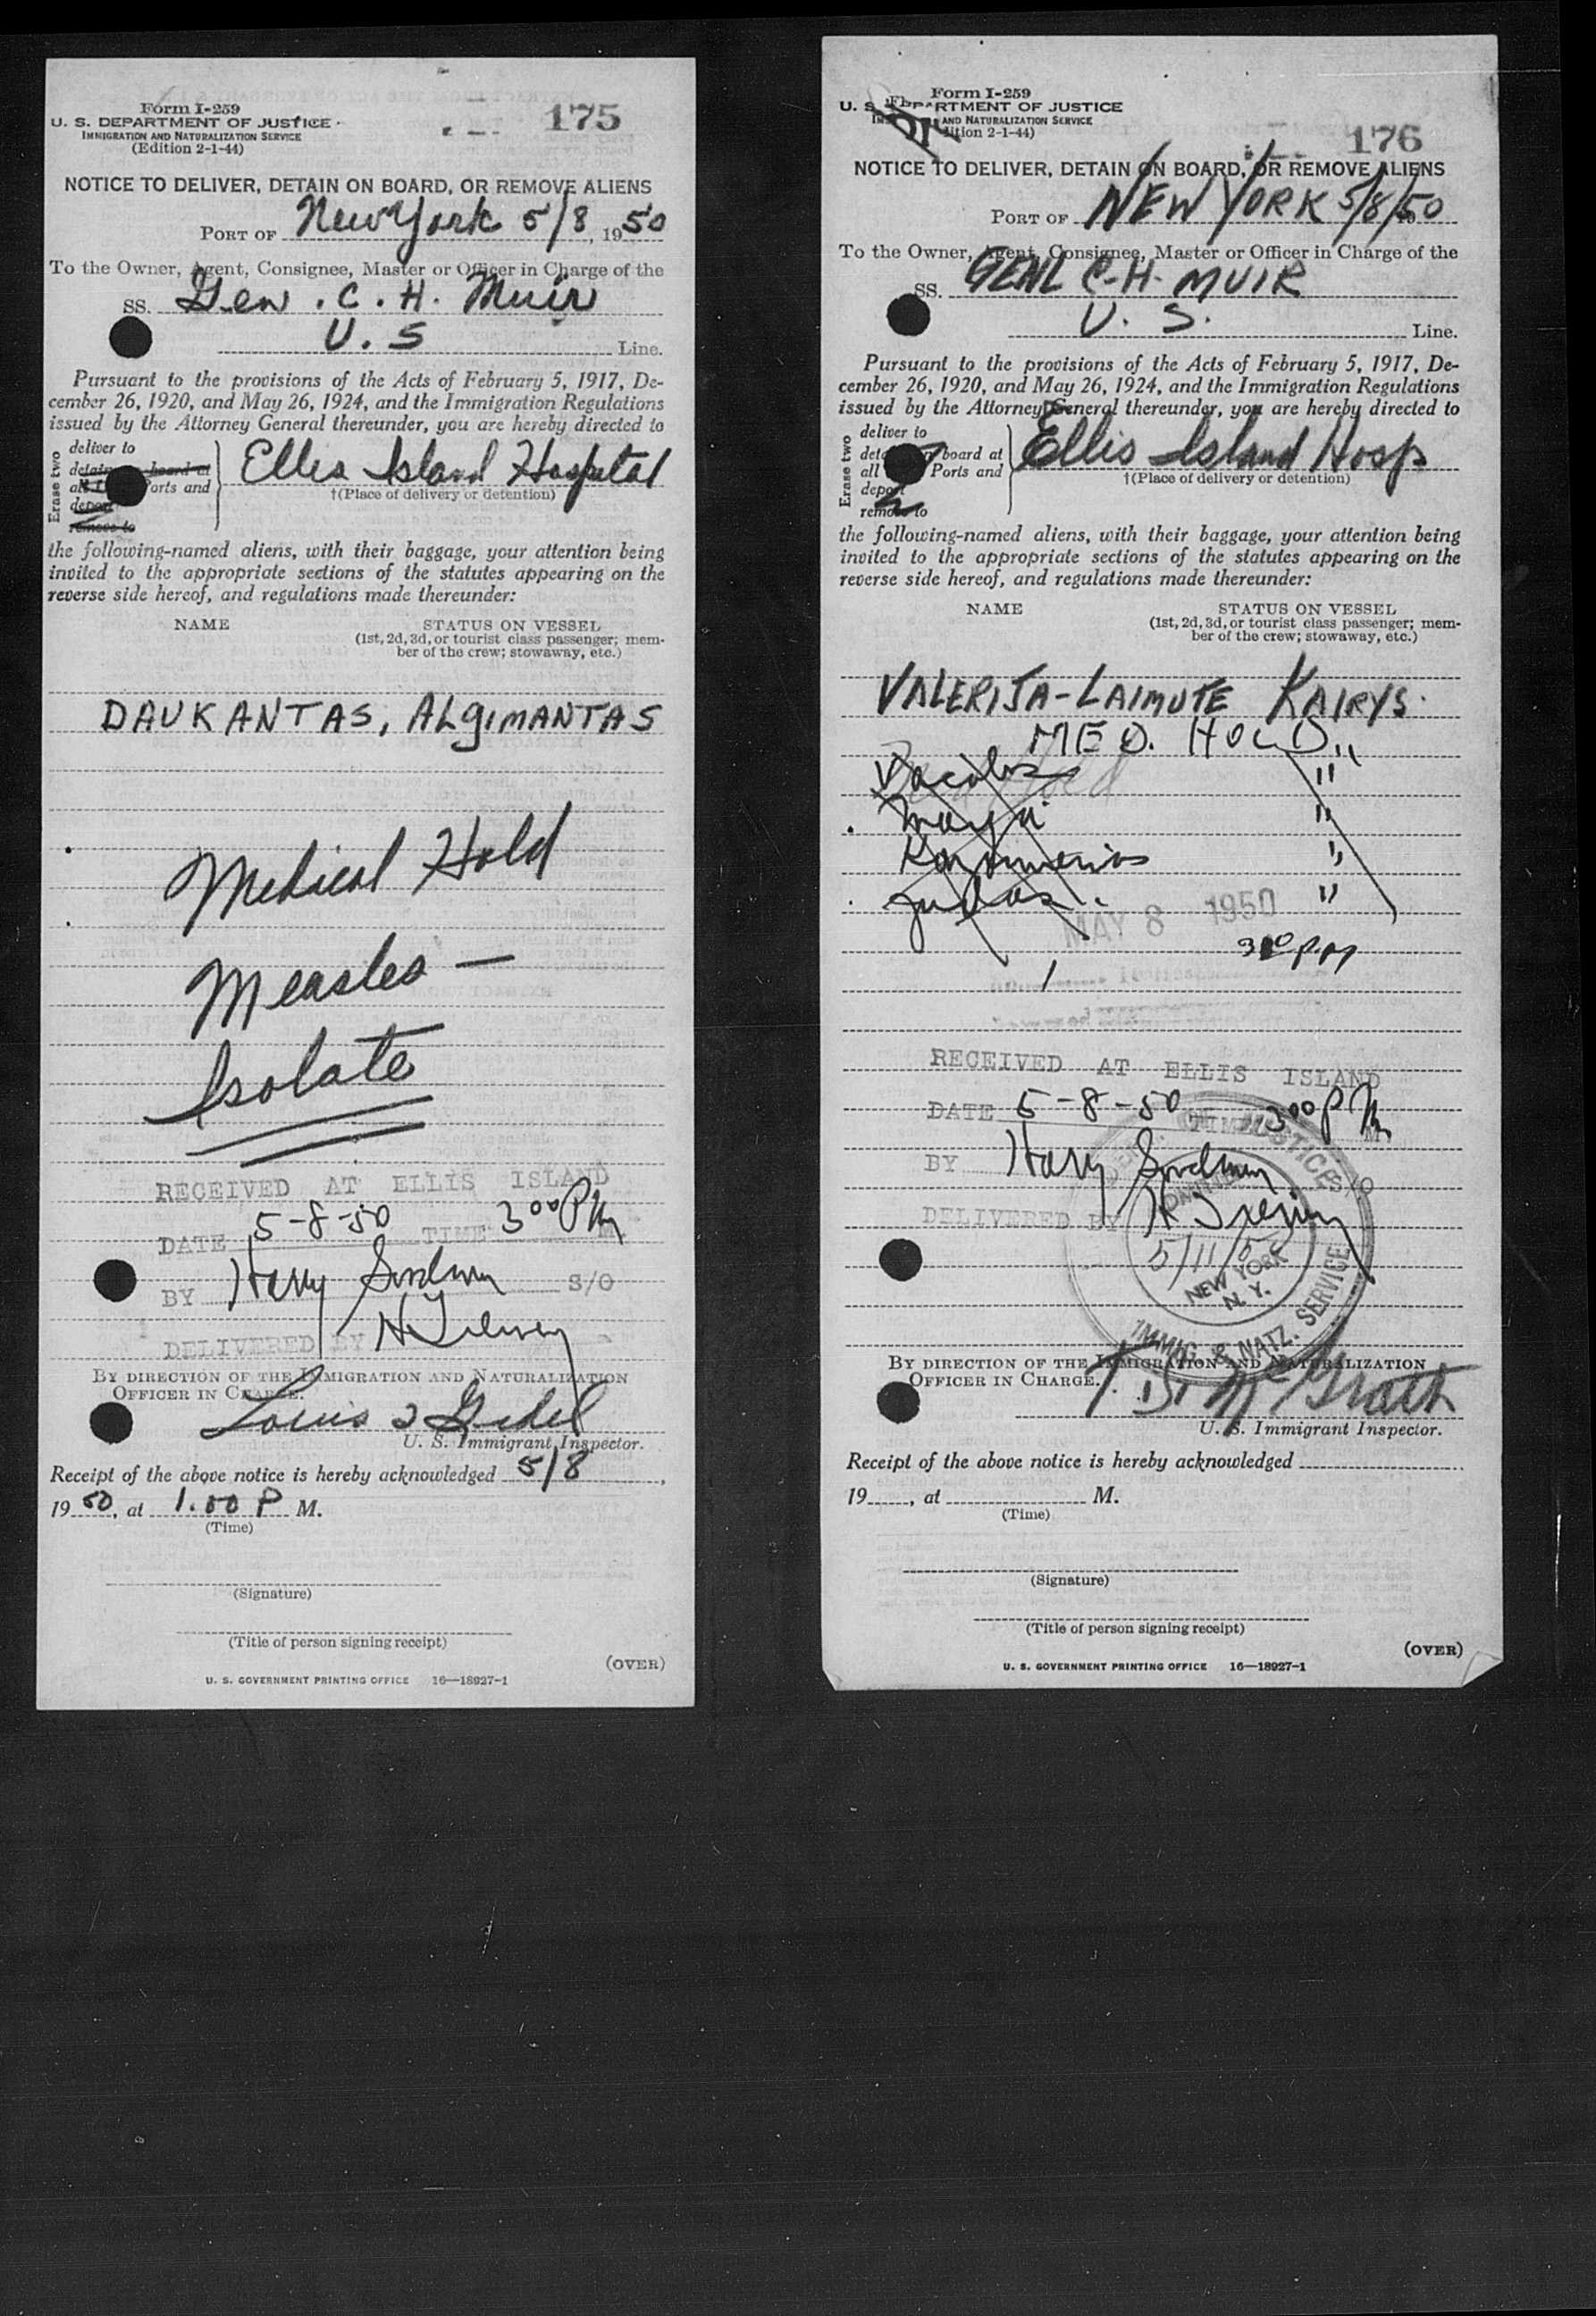 Form I-259
U. S. DEPARTMENT OF JUSTICE
IMMIGRATION AND NATURALIZATION SERVICE
(Edition 2-1-44)
175
NOTICE TO DELIVER, DETAIN ON BOARD, OR REMOVE ALIENS
PORT OF New York 5/8, 1950
To the Owner, Agent, Consignee, Master or Officer in Charge of the
SS. Gen. C. H. Muir
U. S Line.
Pursuant to the provisions of the Acts of February 5, 1917, De-
cember 26, 1920, and May 26, 1924, and the Immigration Regulations
issued by the Attorney General thereunder, you are hereby directed to
Erase two
deliver to
detain board at
Ports and
deport
remove to
Ellis Island Hospital
†(Place of delivery or detention)
the following-named aliens, with their baggage, your attention being
invited to the appropriate sections of the statutes appearing on the
reverse side hereof, and regulations made thereunder:
NAME STATUS ON VESSEL
(1st, 2d, 3d, or tourist class passenger; mem-
ber of the crew; stowaway, etc.)
DAUKANTAS, ALgIMANTAS
Medical Hold
Measles —
Isolate
RECEIVED AT ELLIS ISLAND
DATE 5-8-50 TIME 3 00 PM
BY Harry S/O
DELIVERED BY
BY DIRECTION OF THE IMMIGRATION AND NATURALIZATION
OFFICER IN CHARGE.
Louis
U. S. Immigrant Inspector.
Receipt of the above notice is hereby acknowledged 5/8,
1950, at 1.00 P M.
(Time)
(Signature)
(Title of person signing receipt)
(OVER)
U. S. GOVERNMENT PRINTING OFFICE 16—18927-1
Form I-259
U. S. DEPARTMENT OF JUSTICE
AND NATURALIZATION SERVICE
(Edition 2-1-44)
176
NOTICE TO DELIVER, DETAIN ON BOARD, OR REMOVE ALIENS
PORT OF NEW YORK 5/8/50
To the Owner, Agent, Consignee, Master or Officer in Charge of the
SS. GENL C-H- MUIR
U. S. Line.
Pursuant to the provisions of the Acts of February 5, 1917, De-
cember 26, 1920, and May 26, 1924, and the Immigration Regulations
issued by the Attorney General thereunder, you are hereby directed to
Erase two
deliver to
board at
all Ports and
deport
remove to
Ellis Island Hosp
†(Place of delivery or detention)
the following-named aliens, with their baggage, your attention being
invited to the appropriate sections of the statutes appearing on the
reverse side hereof, and regulations made thereunder:
NAME STATUS ON VESSEL
(1st, 2d, 3d, or tourist class passenger; mem-
ber of the crew; stowaway, etc.)
VALERIJA-LAIMUTE KAIRYS
MED. HOLD "
"
"
"
"
MAY 8 1950
3 00 PM
RECEIVED AT ELLIS ISLAND
DATE 5-8-50 TIME 3 00 PM
BY Harry S/O
DELIVERED BY
DEPT. OF JUSTICE
ADMITTED
5/11/50
NEW YORK
N. Y.
IMMIG. & NATZ. SERVICE
BY DIRECTION OF THE IMMIGRATION AND NATURALIZATION
OFFICER IN CHARGE.
McGrath
U. S. Immigrant Inspector.
Receipt of the above notice is hereby acknowledged
19 , at M.
(Time)
(Signature)
(Title of person signing receipt)
(OVER)
U. S. GOVERNMENT PRINTING OFFICE 16—18927-1